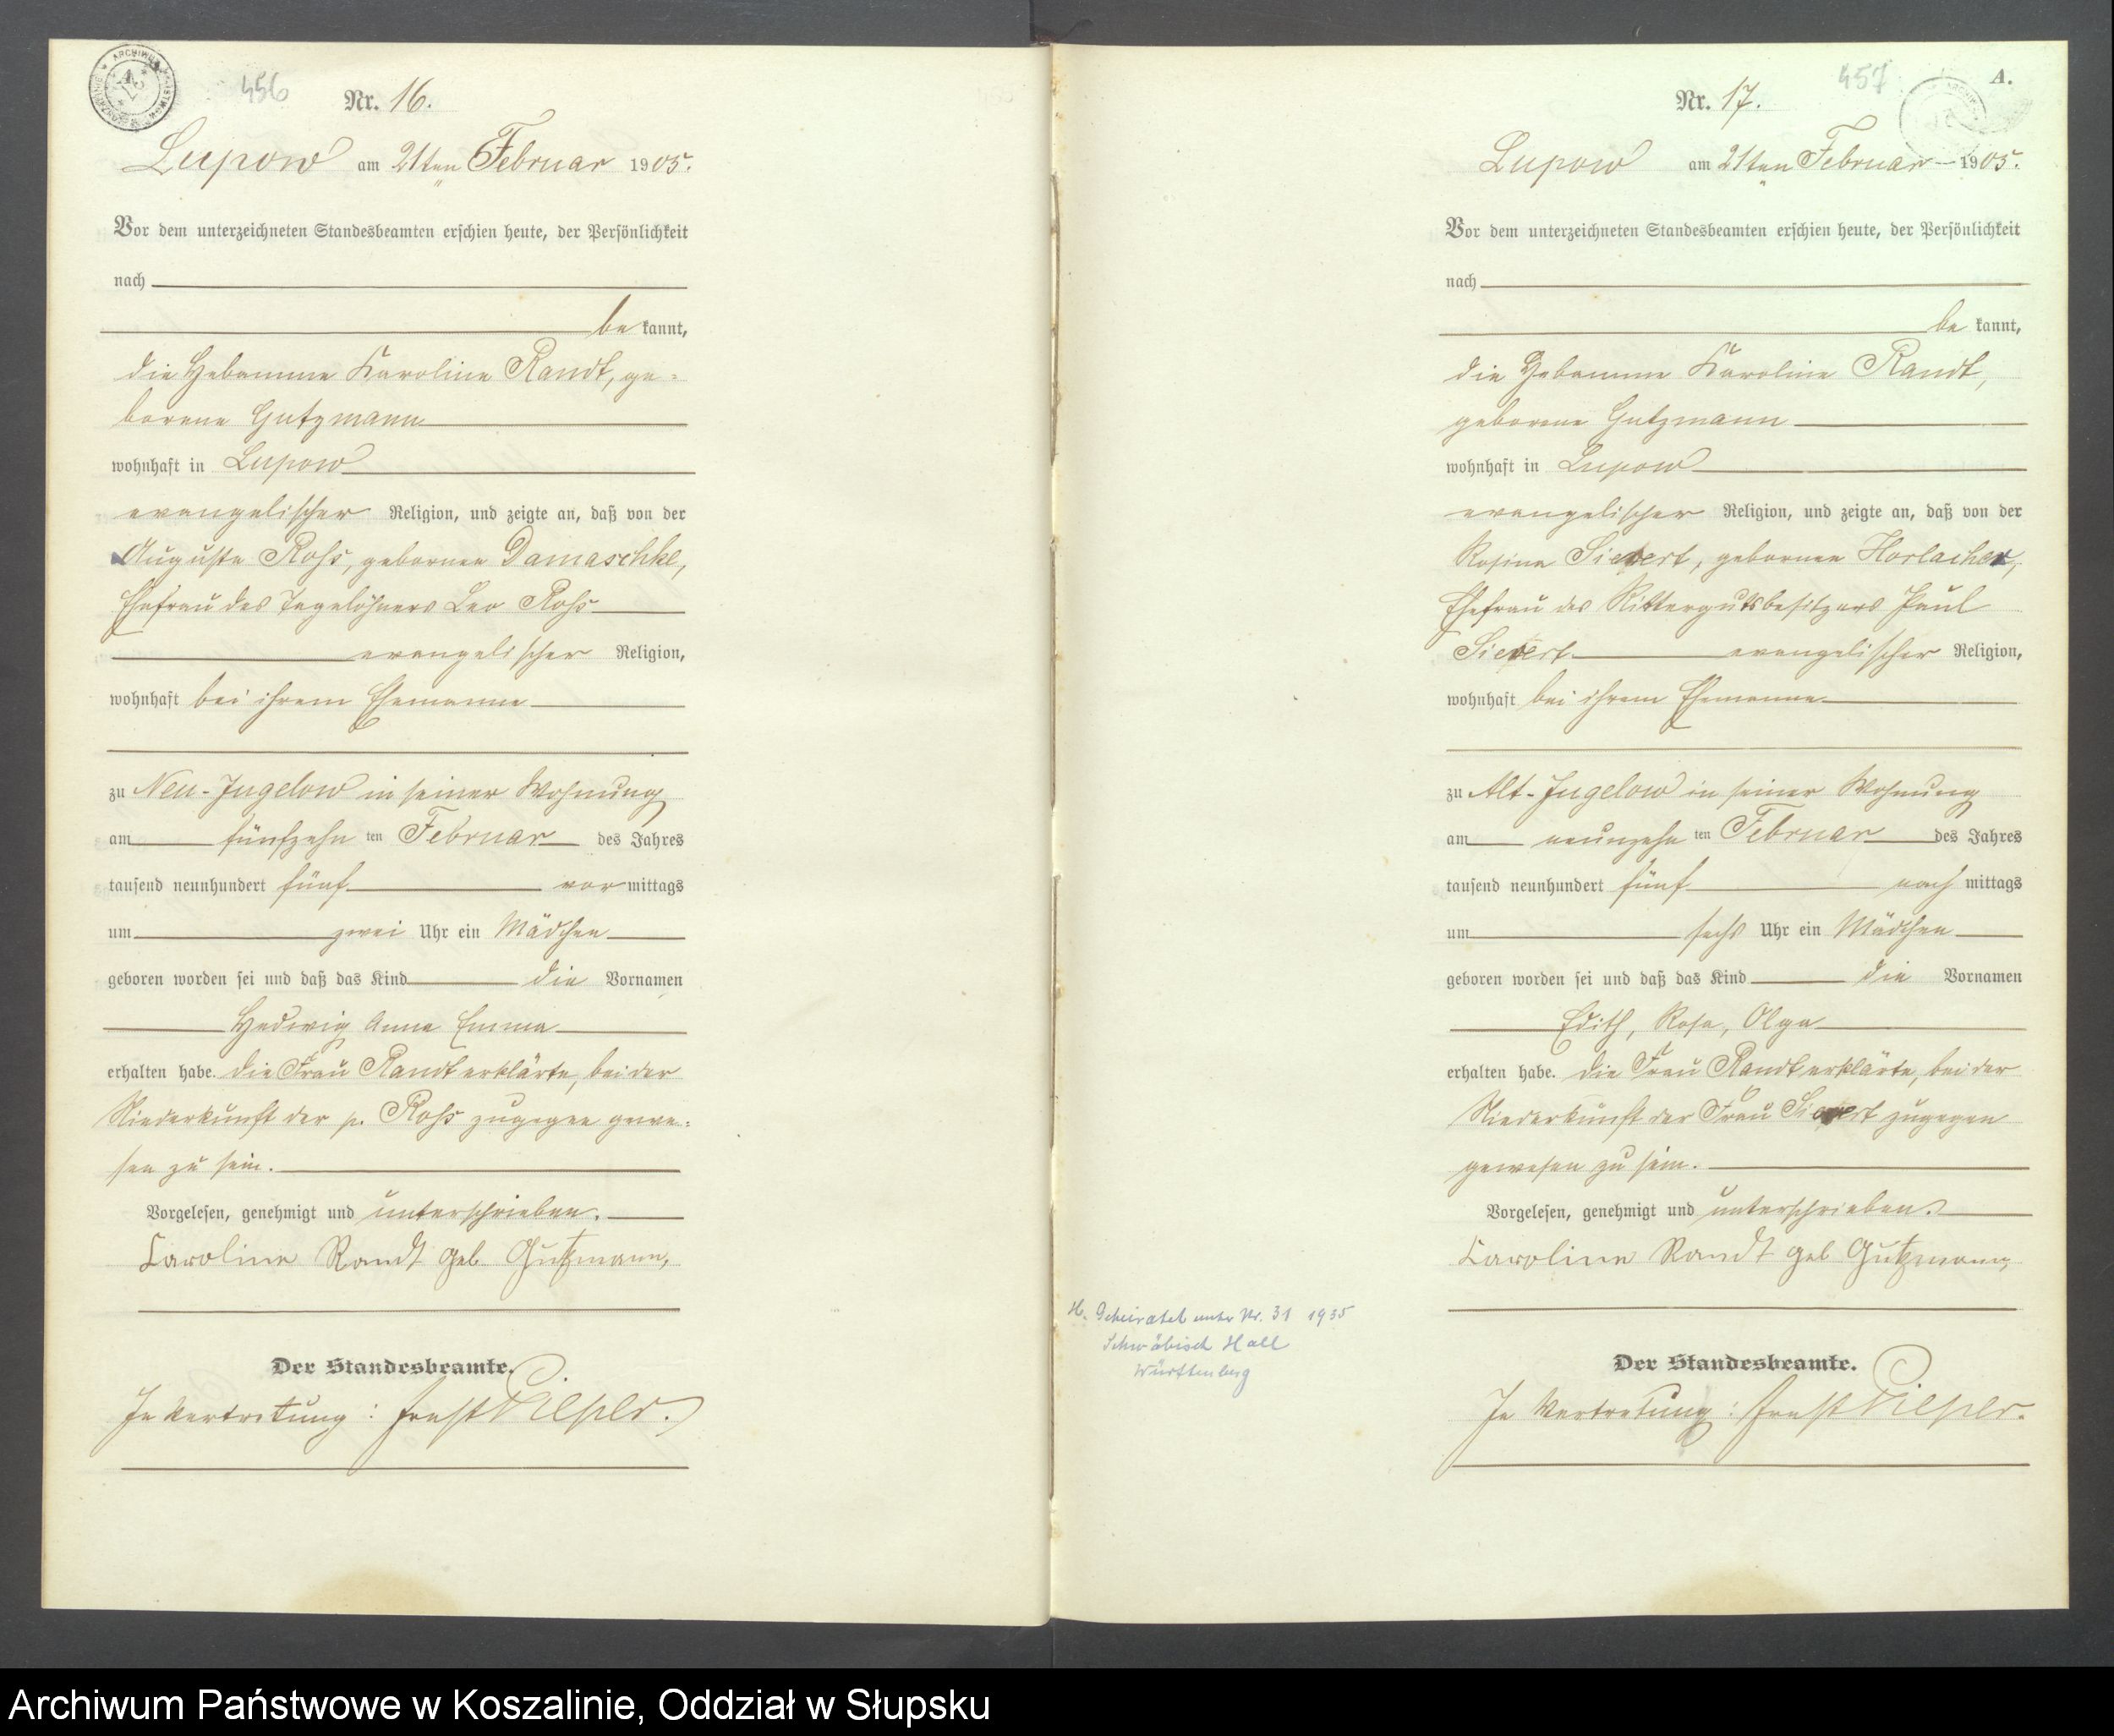 456
Nr. 16.
Lupow am 21ten Februar 1905.
Vor dem unterzeichneten Standesbeamten erschien heute, der Persönlichkeit
nach
be kannt,
die Hebamme Karoline Randt, ge=
borene Gutzmann
wohnhaft in Lupow
evangelischer Religion, und zeigte an, daß von der
Auguste Rohs, gebornen Damaschke,
Ehefrau des Tagelöhners Leo Rohs
evangelischer Religion,
wohnhaft bei ihrem Ehemanne
zu Neu-Jugelow in seiner Wohnung
am fünfzehn ten Februar des Jahres
tausend neunhundert fünf vor mittags
um zwei Uhr ein Mädchen
geboren worden sei und daß das Kind die Vornamen
Hedwig Anna Emma
erhalten habe. Die Frau Randt erklärte, bei der
Niederkunft der p. Rohs zugegen gewe=
sen zu sein.
Vorgelesen, genehmigt und unterschrieben.
Caroline Randt geb. Gutzmann,
Der Standesbeamte.
In Vertretung: Ernst Pieper.
457
A.
Nr. 17.
Lupow am 21ten Februar 1905.
Vor dem unterzeichneten Standesbeamten erschien heute, der Persönlichkeit
nach
be kannt,
die Hebamme Karoline Randt,
geborene Gutzmann
wohnhaft in Lupow
evangelischer Religion, und zeigte an, daß von der
Rosina Sievert, gebornen Horlacher,
Ehefrau des Rittergutsbesitzers Paul
Sievert evangelischer Religion,
wohnhaft bei ihrem Ehemanne
zu Alt-Jugelow in seiner Wohnung
am neunzehn ten Februar des Jahres
tausend neunhundert fünf nach mittags
um sechs Uhr ein Mädchen
geboren worden sei und daß das Kind die Vornamen
Edith, Rosa, Olga
erhalten habe. Die Frau Randt erklärte, bei der
Niederkunft der Frau Sievert zugegen
gewesen zu sein.
Vorgelesen, genehmigt und unterschrieben.
Caroline Randt geb Gutzmann,
H. Geheiratet unter Nr. 31 1935
Schwäbisch Hall
Württemberg
Der Standesbeamte.
In Vertretung: Ernst Pieper.
Archiwum Państwowe w Koszalinie, Oddział w Słupsku